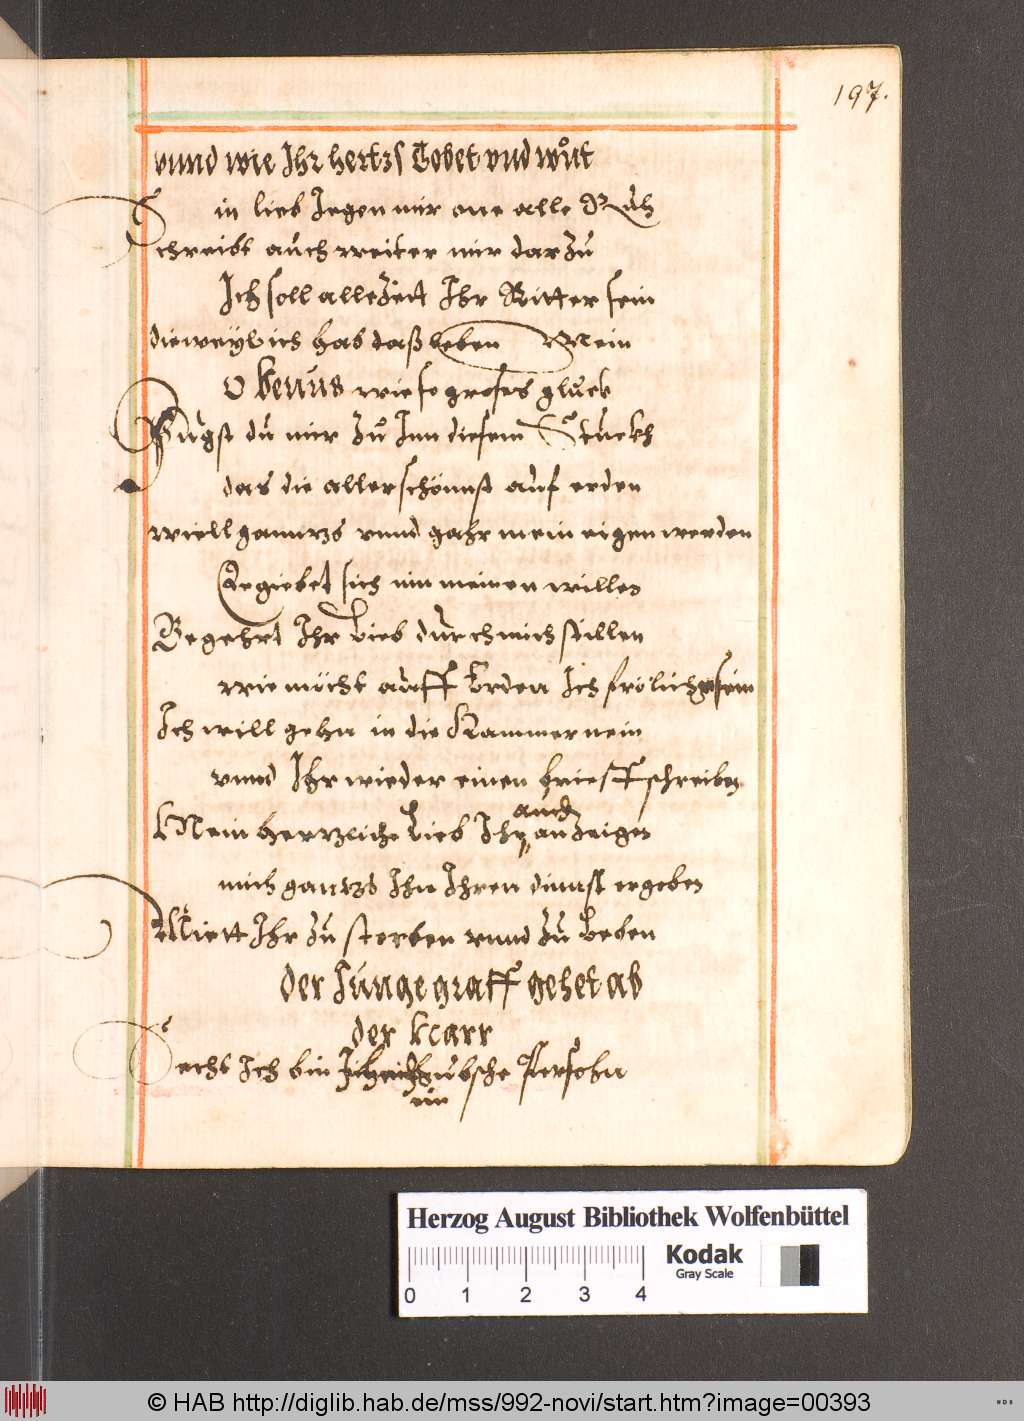 197.
vnnd wie Ihr hertzs Tobet vnd wůt
in lieb Jegen mir one alle Ruh
Schreibt auch weiter mir darzu
Ich soll allezeit Ihr Ritter sein
dieweyl ich hab daß leben Mein
O Venus wie so groses gluck
Fugst du mir zů Inn diesem Stuckh
das die allerschönnst auf erden
wiell ganntzs vnnd gahr mein eigen werden
Ergiebet sich inn meinen willen
Begehrt Ihr Lieb durch mich stillen
wie möcht auff Erden Ich frölicher sein
Ich will gehn in die Kammer nein
vnnd Ihr wieder einen brieff schreiben
Mein hertzliche Lieb Ihr auch anzeigen
mich gantzs Ihn Ihren dinnst ergeben
Miett Ihr zu sterben vnnd zu Leben
der Junge graff gehet ab
der Narr
Secht Ich bin ein hubsche Persohn
Herzog August Bibliothek Wolfenbüttel
Kodak
Gray Scale
0 1 2 3 4
© HAB http://diglib.hab.de/mss/992-novi/start.htm?image=00393